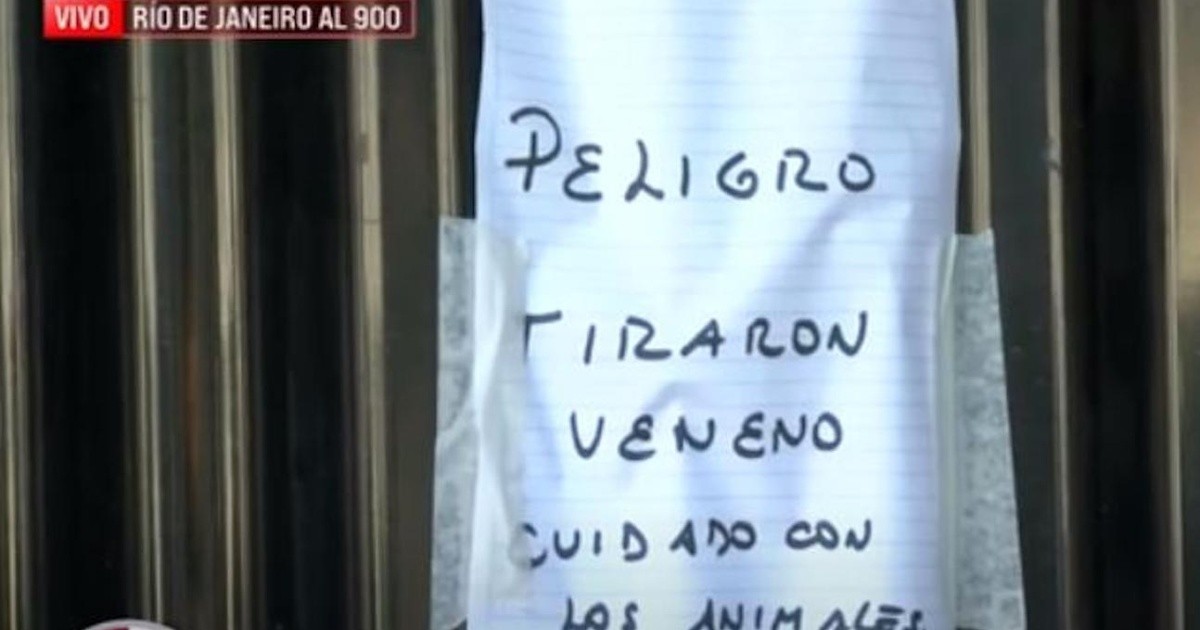 VIVO RÍO DE JANEIRO AL 900
PELIGRO
TIRARON
VENENO
CUIDADO CON
LOS ANIMALES